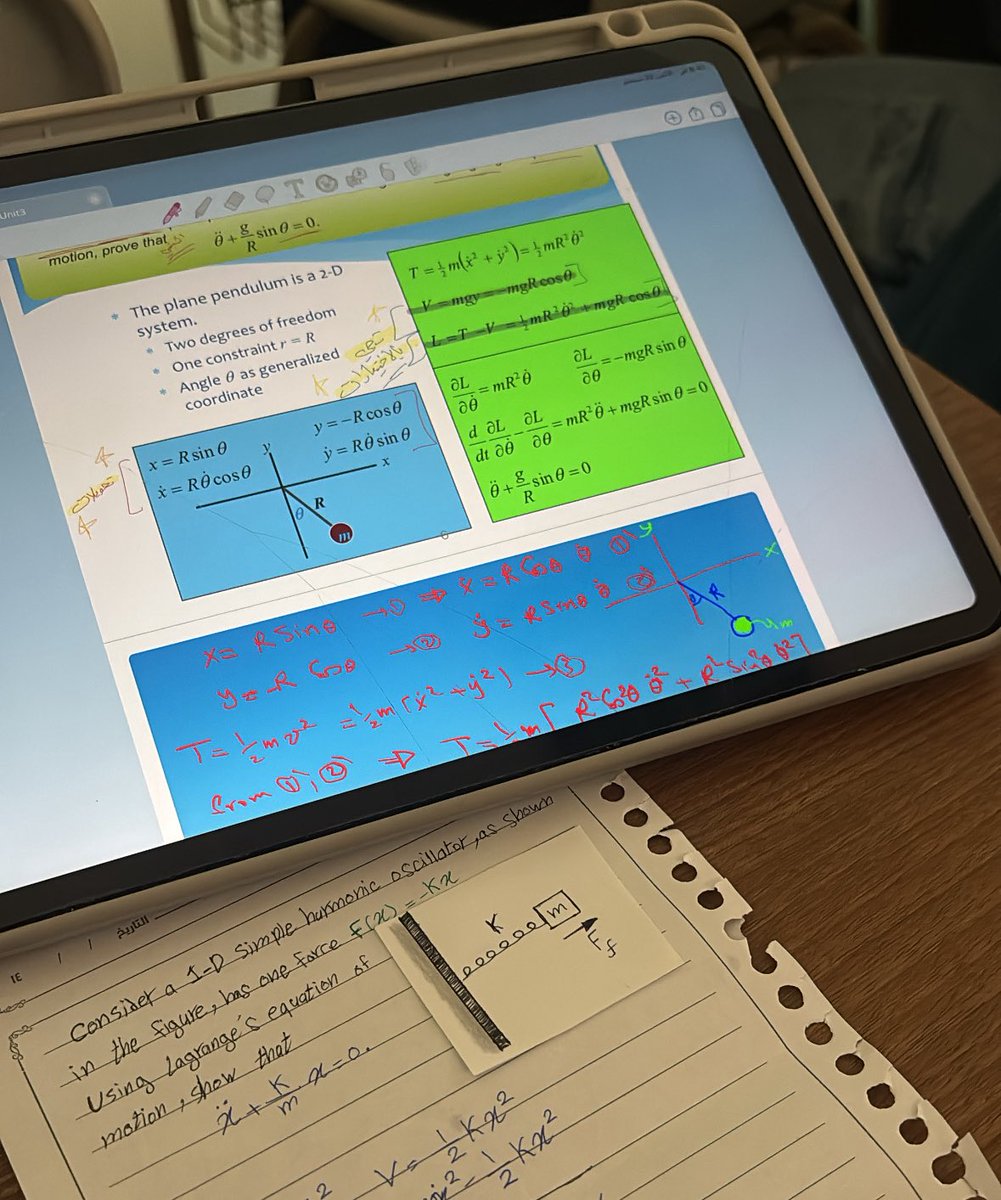 Unit3
motion, prove that θ̈ + g/R sin θ = 0.
* The plane pendulum is a 2-D
system.
* Two degrees of freedom
* One constraint r = R
* Angle θ as generalized
coordinate
T = ½m(ẋ² + ẏ²) = ½mR²θ̇²
V = mgy = -mgR cos θ
L = T - V = ½mR²θ̇² + mgR cos θ
∂L/∂θ̇ = mR²θ̇ ∂L/∂θ = -mgR sin θ
d/dt ∂L/∂θ̇ - ∂L/∂θ = mR²θ̈ + mgR sin θ = 0
θ̈ + g/R sin θ = 0
x = R sin θ y = -R cos θ
ẋ = Rθ̇ cos θ ẏ = Rθ̇ sin θ
y
x
θ R
m
x = R Sinθ → ① ⇒ ẋ = R Cosθ θ̇ ①'
y = -R Cosθ → ② ẏ = R Sinθ θ̇ ②'
T = ½ m v² = ½ m [ẋ² + ẏ²) → ③
from ①', ②' ⇒ T = ½ m [R² Cos²θ θ̇² + R² Sin²θ θ̇²]
y
x
θ R
m
التاريخ / /
Consider a 1-D simple harmonic oscillator, as shown
in the figure, has one force F(x) = -Kx
Using Lagrange's equation of
motion, show that
ẍ + K/m x = 0.
K
m
F f
V = 1/2 K x²
ẋ² - 1/2 K x²